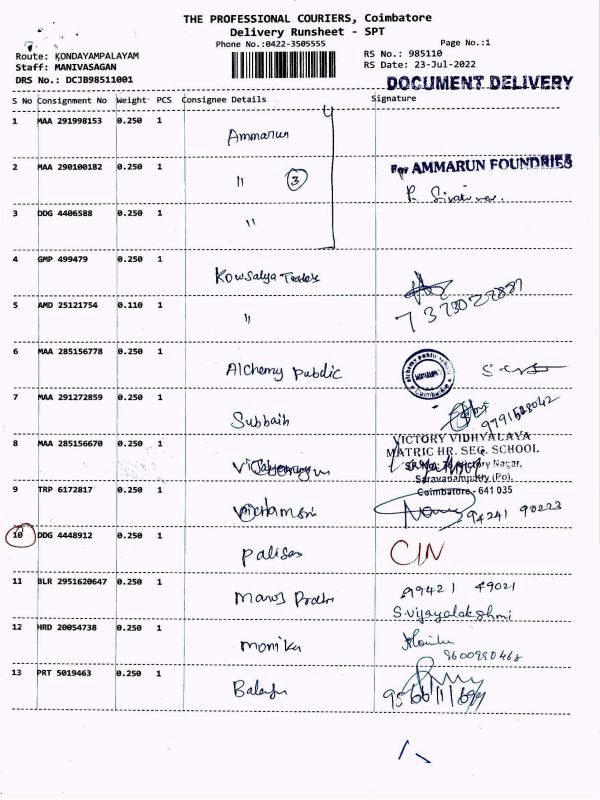 THE PROFESSIONAL COURIERS, Coimbatore
Delivery Runsheet - SPT
Phone No.:0422-3505555
Page No.:1
Route: KONDAYAMPALAYAM
RS No.: 985110
Staff: MANIVASAGAN
RS Date: 23-Jul-2022
DRS No.: DCJB98511001
DOCUMENT DELIVERY
S No Consignment No Weight PCS Consignee Details Signature
1 MAA 291998153 0.250 1 Ammarun
2 MAA 290100182 0.250 1 " 3 For AMMARUN FOUNDRIES
3 DDG 4406588 0.250 1 "
4 GMP 499479 0.250 1 Kowsalya
5 AMD 25121754 0.110 1 " 7373027887
6 MAA 285156778 0.250 1 Alchemy Public
7 MAA 291272859 0.250 1 Subbaih
VICTORY VIDHYALAYA
8 MAA 285156670 0.250 1 MATRIC HR. SEC. SCHOOL.
Victory Nagar,
Saravanampatty (Po),
Coimbatore - 641 035
9 TRP 6172817 0.250 1 94241 90223
10 DDG 4448912 0.250 1 Palisas CIN
11 BLR 2951620647 0.250 1 Manoj 99421 49021
S.vijayalakshmi
12 HRD 20054738 0.250 1 Monika
9600990468
13 PRT 5019463 0.250 1